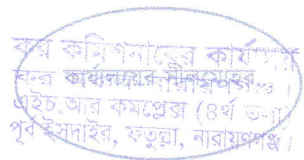 কর কমিশনারের কার্যালয়
কর
এইচ.আর কমপ্লেক্স (৪র্থ তলা)
পূর্ব ইসদাইর, ফতুল্লা, নারায়ণগঞ্জ।